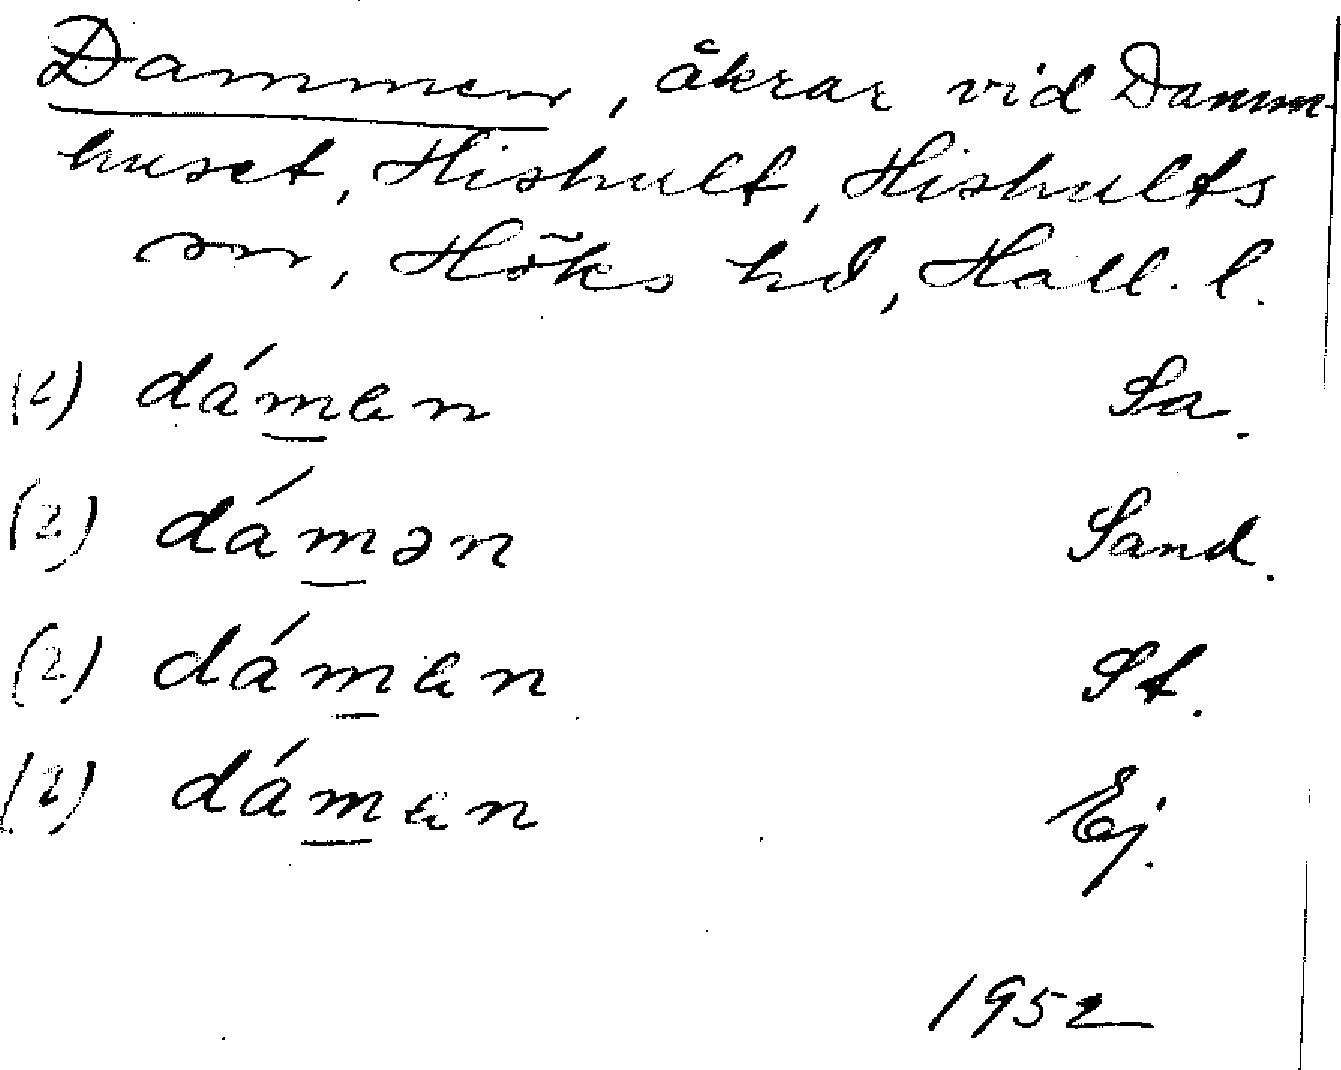 Dammen, åkrar vid Damm-
huset, Hishult, Hishults
sn, Höks hd, Hall. l.
(2) dámən Sa.
(2) dámən Sand.
(2) dámən St.
(2) dámən Ej.
1952